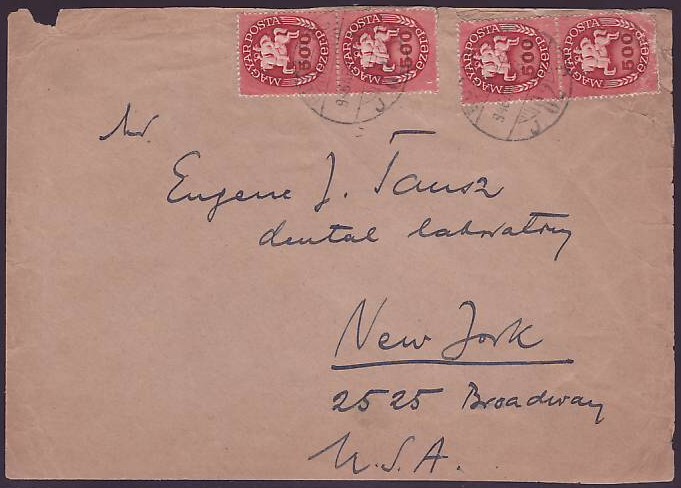 MAGYAR POSTA 500 ezerp
MAGYAR POSTA 500 ezerp
MAGYAR POSTA 500 ezerp
MAGYAR POSTA 500 ezerp
Mr.
Eugene J. Tausz
dental laboratory
New York
2525 Broadway
U.S.A.